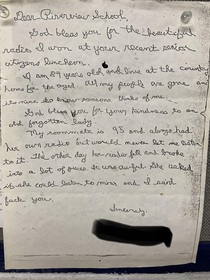 Dear Riverview School,
God bless you for the beautiful
radio I won at your recent senior
citizens luncheon.
I am 89 years old and live at the country
home for the aged. All my people are gone and
it's nice to know someone thinks of me.
God bless you for your kindness to an
old forgotten lady.
My roommate is 95 and always had
her own radio but would never let me listen
to it. The other day her radio fell and broke
into a lot of pieces. It was awful. She asked
if she could listen to mine, and I said
fuck you.
Sincerely,